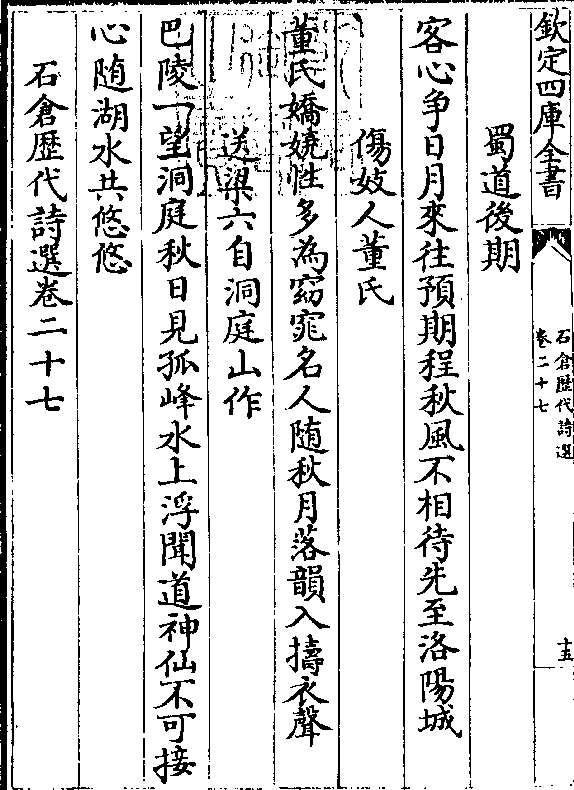 欽定四庫全書
石倉歴代詩選
卷二十七
十五
蜀道後期
客心争日月來往預期程秋風不相待先至洛陽城
傷妓人董氏
董氏嬌嬈性多為窈窕名人随秋月落韻入擣衣聲
送梁六自洞庭山作
巴陵一望洞庭秋日見孤峰水上浮聞道神仙不可接
心随湖水共悠悠
石倉歴代詩選卷二十七